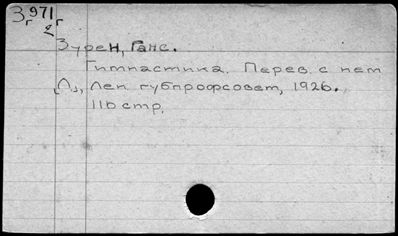 З 971
г 2 г
Зурен, Ганс.
Гимнастика. Перев. с нем
Л., Лен. губпрофсовет, 1926.
116 стр.